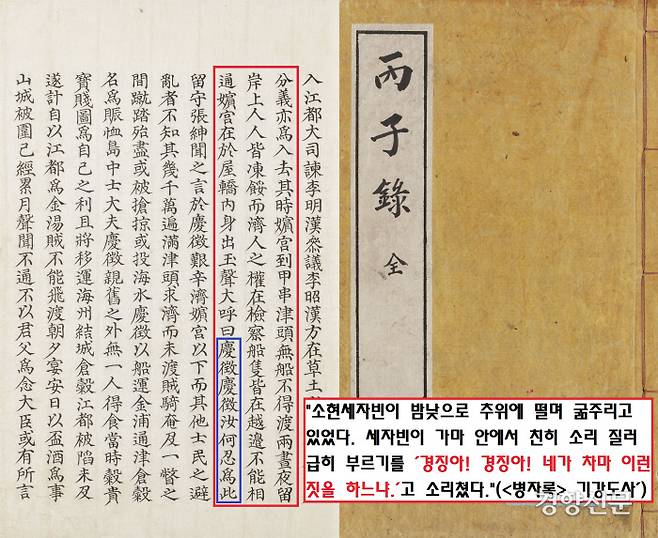 入江都大司諫李明漢叅議李昭漢方在草土
分義亦爲入去其時嬪宮到甲串津頭無船不得渡兩晝夜留
岸上人人皆凍餒而濟人之權在檢察船隻皆在越邊不能相
通嬪宮在於屋轎內身出玉聲大呼曰慶徵慶徵汝何忍爲此
留守張紳聞之言於慶徵艱辛濟嬪宮以下而其他士民之避
亂者不知其幾千萬遍滿津頭求濟而未渡賊騎奄及一瞥之
間蹴踏殆盡或被搶掠或投海水慶徵以船運金浦通津倉穀
名爲賑恤島中士大夫慶徵親舊之外無一人得食當時穀貴
寶賤圖爲自己之利且將移運海州結城倉穀江都被陷未及
遂計自以江都爲金湯賊不能飛渡朝夕宴安日以盃酒爲事
山城被圍己經累月聲聞不通不以君父爲念大臣或有所言
丙子錄 全
"소현세자빈이 밤낮으로 추위에 떨며 굶주리고
있었다. 세자빈이 가마 안에서 친히 소리 질러
급히 부르기를 ´경징아! 경징아! 네가 차마 이런
짓을 하느냐.´고 소리쳤다."(<병자록> 기강도사´)
경향신문